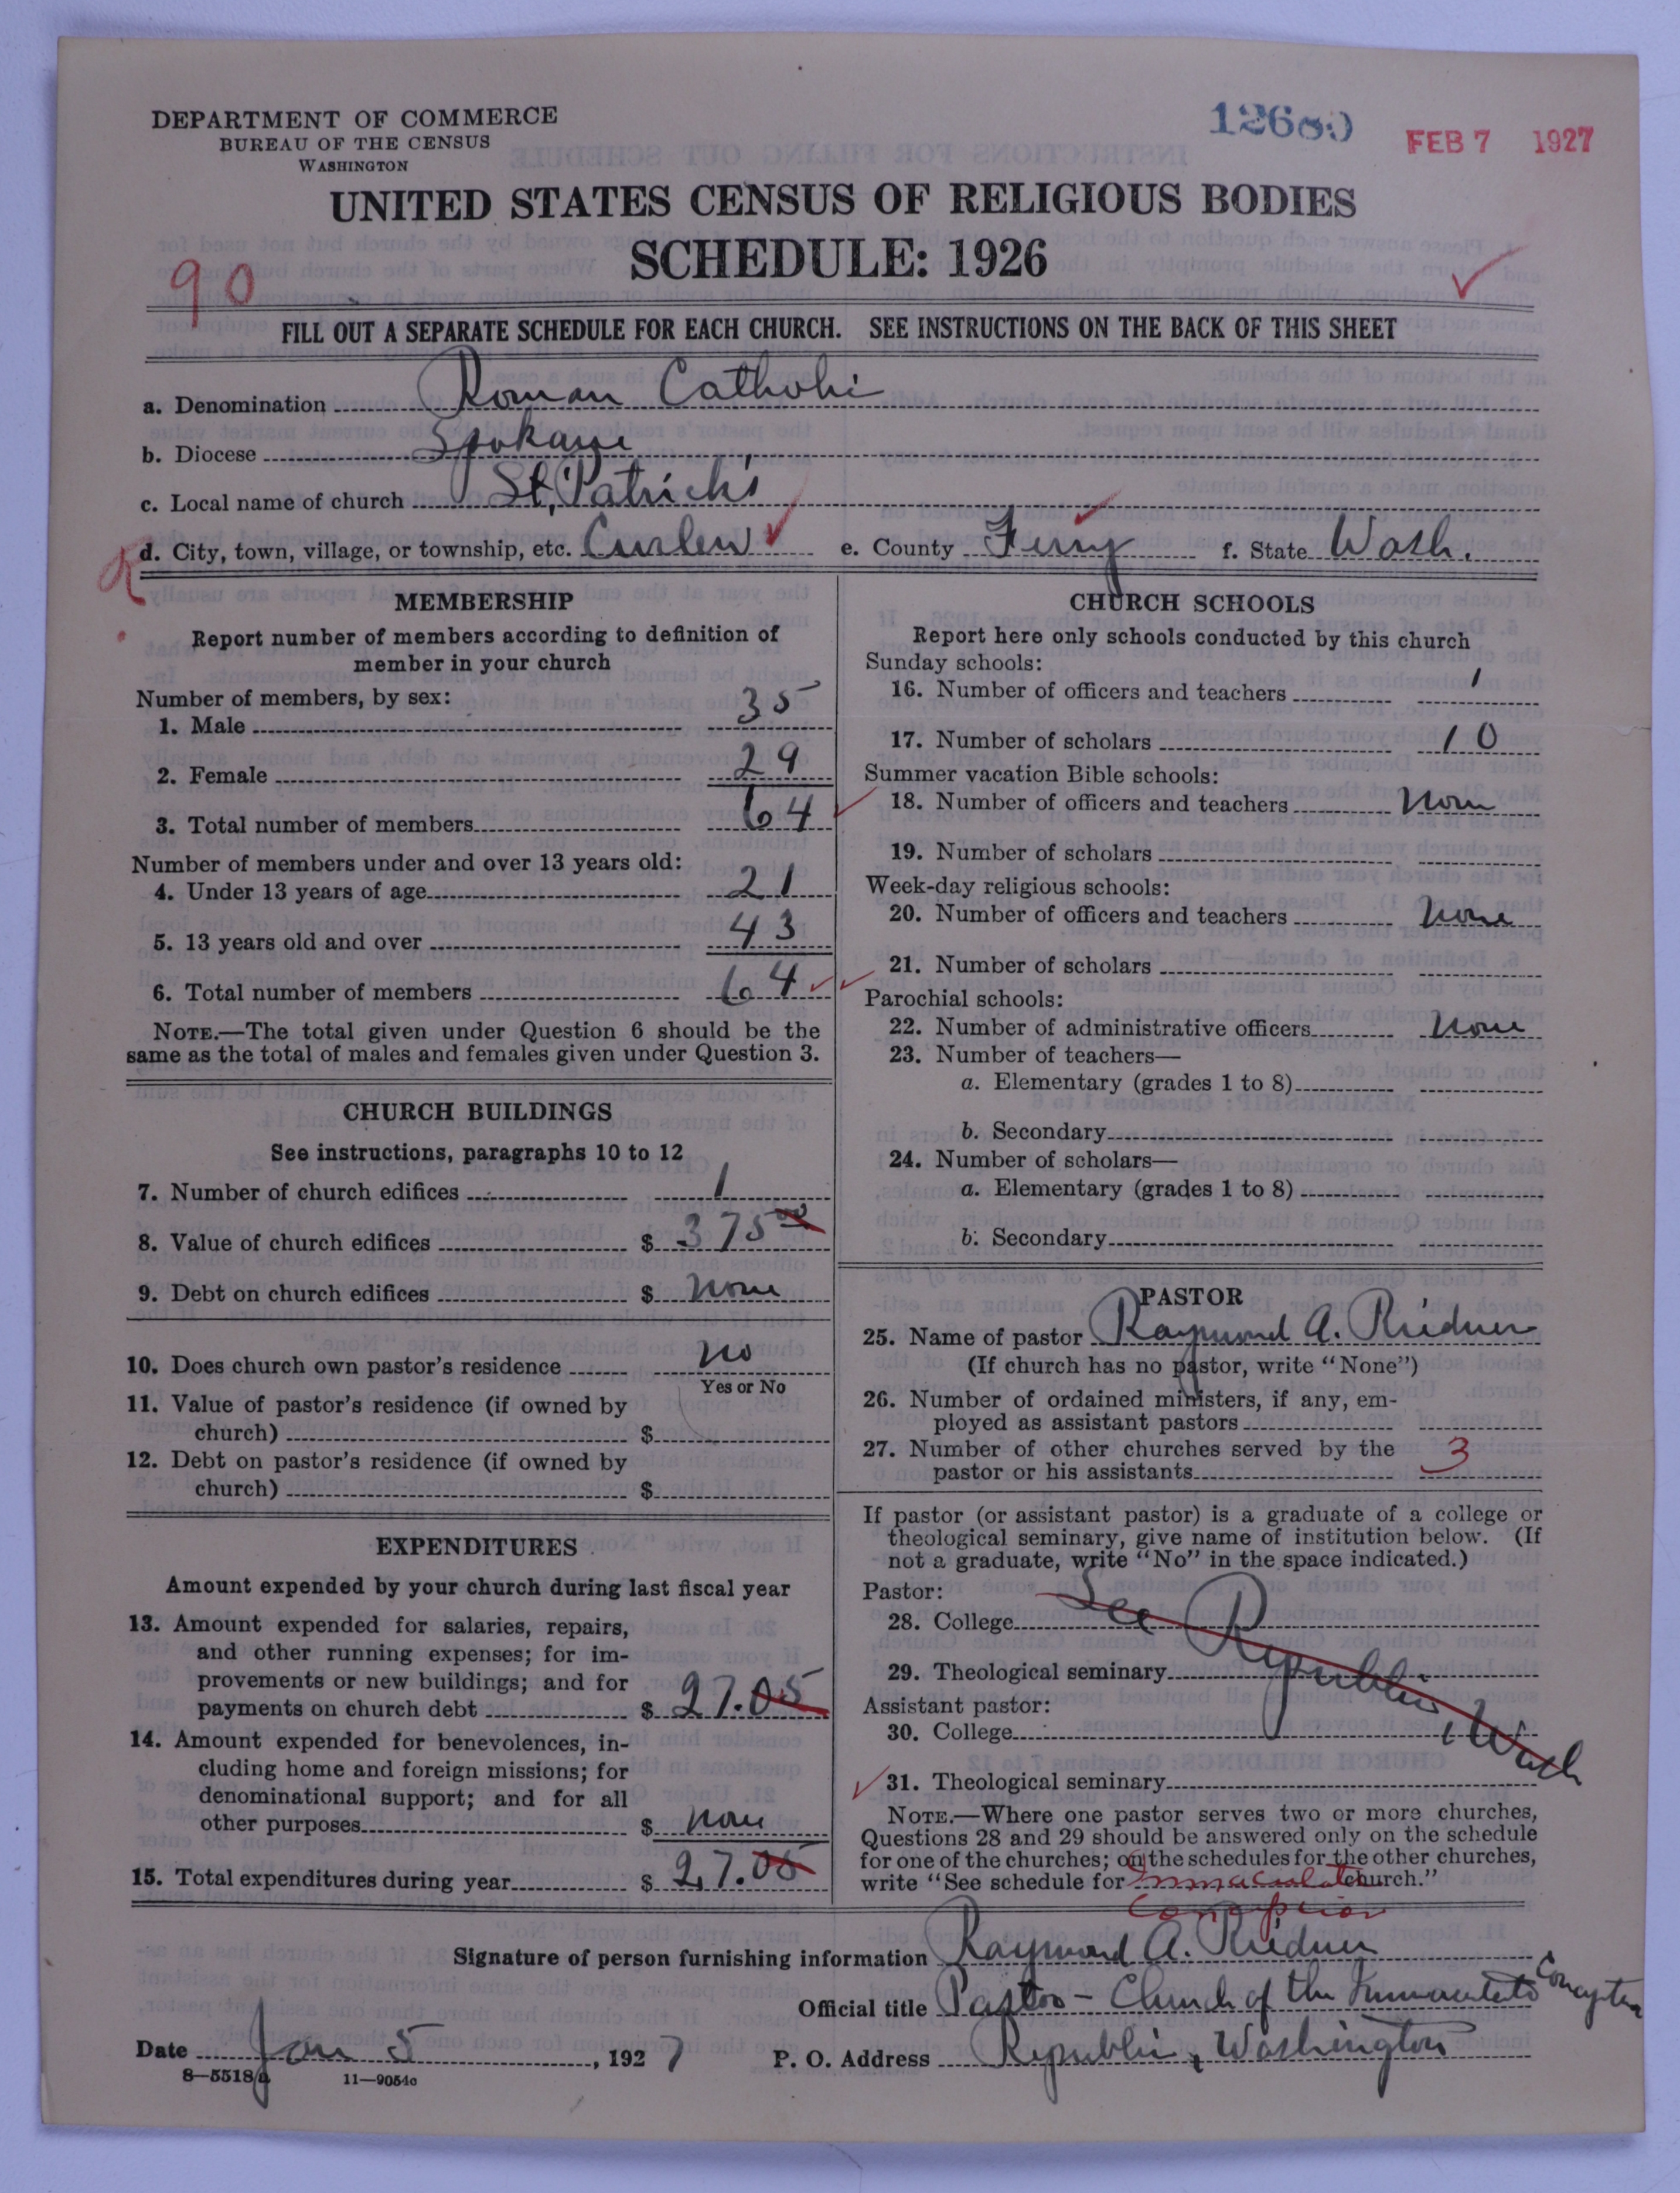 DEPARTMENT OF COMMERCE
BUREAU OF THE CENSUS
WASHINGTON
12680
FEB 7 1927
UNITED STATES CENSUS OF RELIGIOUS BODIES
SCHEDULE: 1926
90
FILL OUT A SEPARATE SCHEDULE FOR EACH CHURCH. SEE INSTRUCTIONS ON THE BACK OF THIS SHEET
a. Denomination Roman Catholic
b. Diocese Spokane
c. Local name of church St. Patrick's
d. City, town, village, or township, etc. Curlew e. County Ferry f. State Wash.
MEMBERSHIP
Report number of members according to definition of
member in your church
Number of members, by sex:
1. Male 35
2. Female 29
3. Total number of members 64
Number of members under and over 13 years old:
4. Under 13 years of age 21
5. 13 years old and over 43
6. Total number of members 64
NOTE.—The total given under Question 6 should be the
same as the total of males and females given under Question 3.
CHURCH BUILDINGS
See instructions, paragraphs 10 to 12
7. Number of church edifices 1
8. Value of church edifices $ 375 00
9. Debt on church edifices $ None
10. Does church own pastor's residence No
Yes or No
11. Value of pastor's residence (if owned by
church) $
12. Debt on pastor's residence (if owned by
church) $
EXPENDITURES
Amount expended by your church during last fiscal year
13. Amount expended for salaries, repairs,
and other running expenses; for im-
provements or new buildings; and for
payments on church debt $ 27.05
14. Amount expended for benevolences, in-
cluding home and foreign missions; for
denominational support; and for all
other purposes $ None
15. Total expenditures during year $ 27.05
CHURCH SCHOOLS
Report here only schools conducted by this church
Sunday schools:
16. Number of officers and teachers 1
17. Number of scholars 10
Summer vacation Bible schools:
18. Number of officers and teachers None
19. Number of scholars
Week-day religious schools:
20. Number of officers and teachers None
21. Number of scholars
Parochial schools:
22. Number of administrative officers None
23. Number of teachers—
a. Elementary (grades 1 to 8)
b. Secondary
24. Number of scholars—
a. Elementary (grades 1 to 8)
b. Secondary
PASTOR
25. Name of pastor Raymond A. Riedner
(If church has no pastor, write "None")
26. Number of ordained ministers, if any, em-
ployed as assistant pastors
27. Number of other churches served by the
pastor or his assistants 3
If pastor (or assistant pastor) is a graduate of a college or
theological seminary, give name of institution below. (If
not a graduate, write "No" in the space indicated.)
Pastor:
28. College See Republic, Wash
29. Theological seminary
Assistant pastor:
30. College
31. Theological seminary
NOTE.—Where one pastor serves two or more churches,
Questions 28 and 29 should be answered only on the schedule
for one of the churches; on the schedules for the other churches,
write "See schedule for Immaculate Conception church."
Signature of person furnishing information Raymond A. Riedner
Official title Pastor - Church of the Immaculate Conception
Date Jan 5, 1927 P. O. Address Republic, Washington
8—5518a 11—9054c